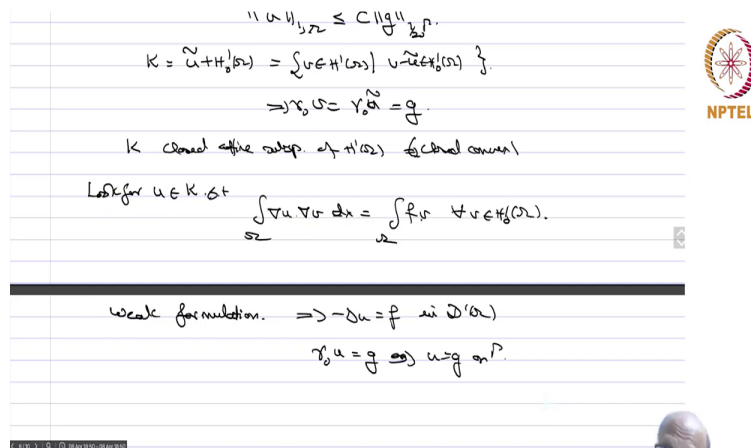 ||ũ||₁,Ω ≤ C ||g||½,Γ
K = ũ + H₀¹(Ω) = {v ∈ H¹(Ω) | v - ũ ∈ H₀¹(Ω)}.
⇒ γ₀ v = γ₀ ũ = g.
K closed affine subsp. of H¹(Ω) closed convex
Look for u ∈ K s.t ∫_Ω ∇u.∇v dx = ∫_Ω f v ∀ v ∈ H₀¹(Ω).
NPTEL
Weak formulation. ⇒ -Δu = f in D'(Ω)
γ₀ u = g ⇒ u = g on Γ.